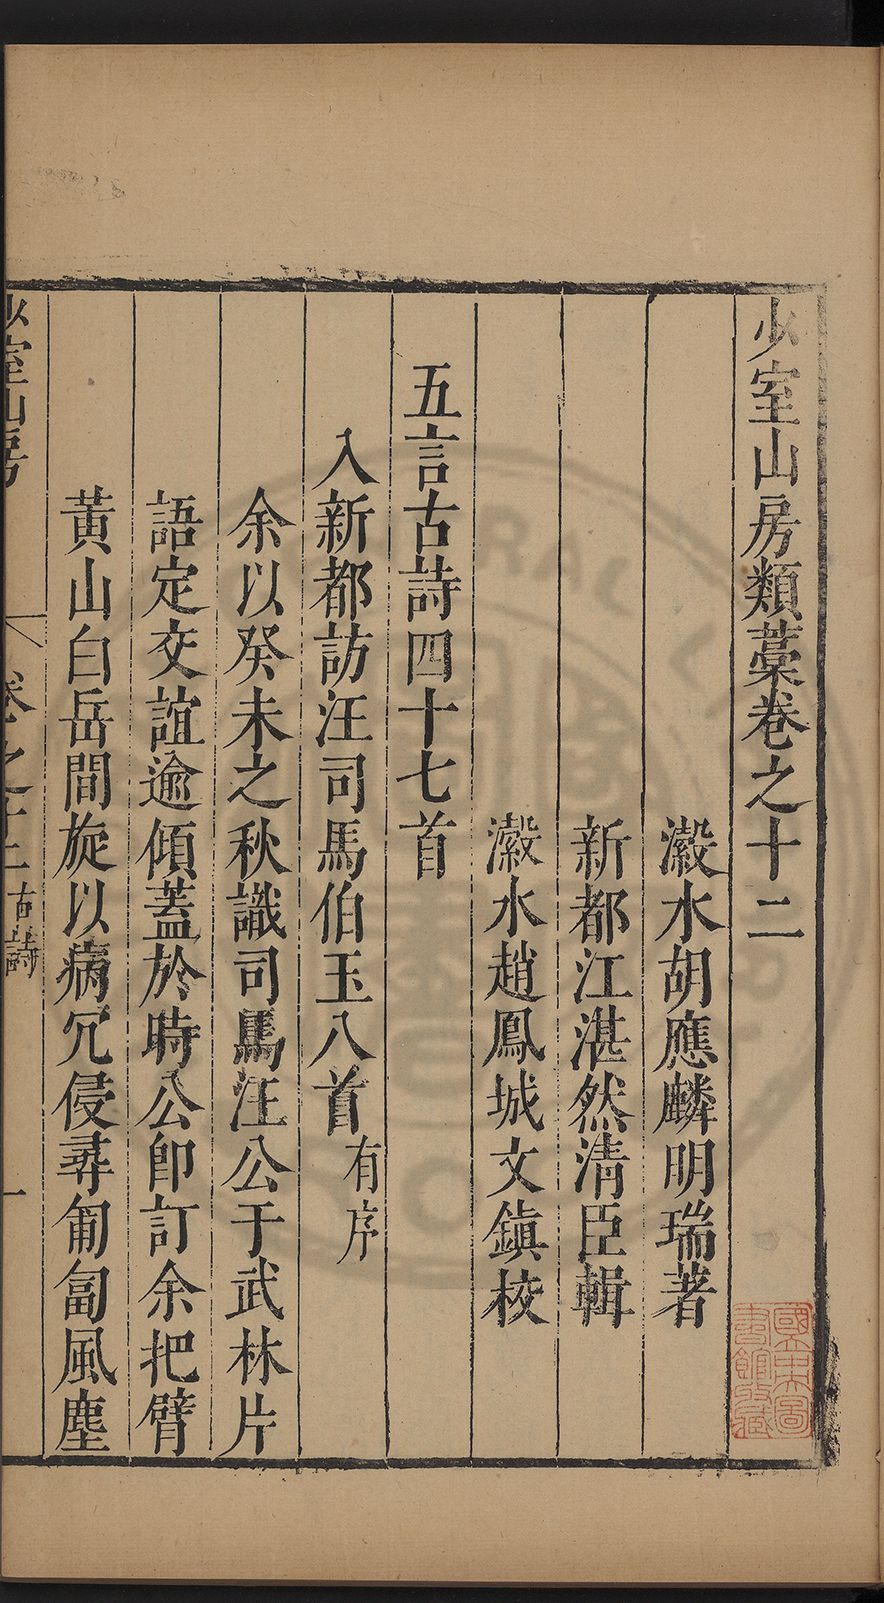 少室山房類藁卷之十二
瀫水胡應麟明瑞著
新都江湛然清臣輯
瀫水趙鳳城文鎮校
五言古詩四十七首
入新都訪汪司馬伯玉八首有序
余以癸未之秋識司馬汪公于武林片
語定交誼逾傾蓋於時公卽訂余把臂
黃山白岳間旋以病冗侵尋匍匐風塵
少室山房
卷之十二
古詩
一
國立中央圖
書館收藏